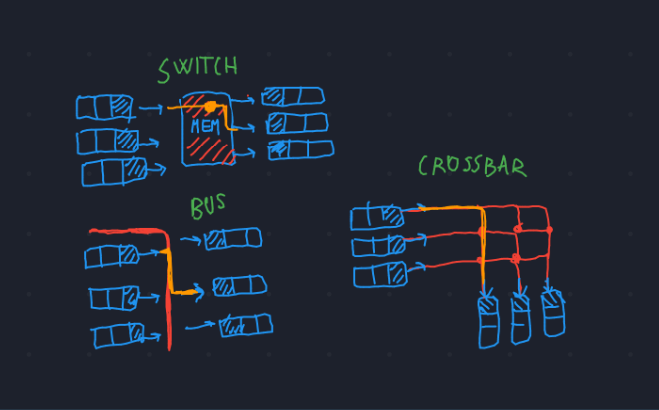 SWITCH
MEM
BUS
CROSSBAR